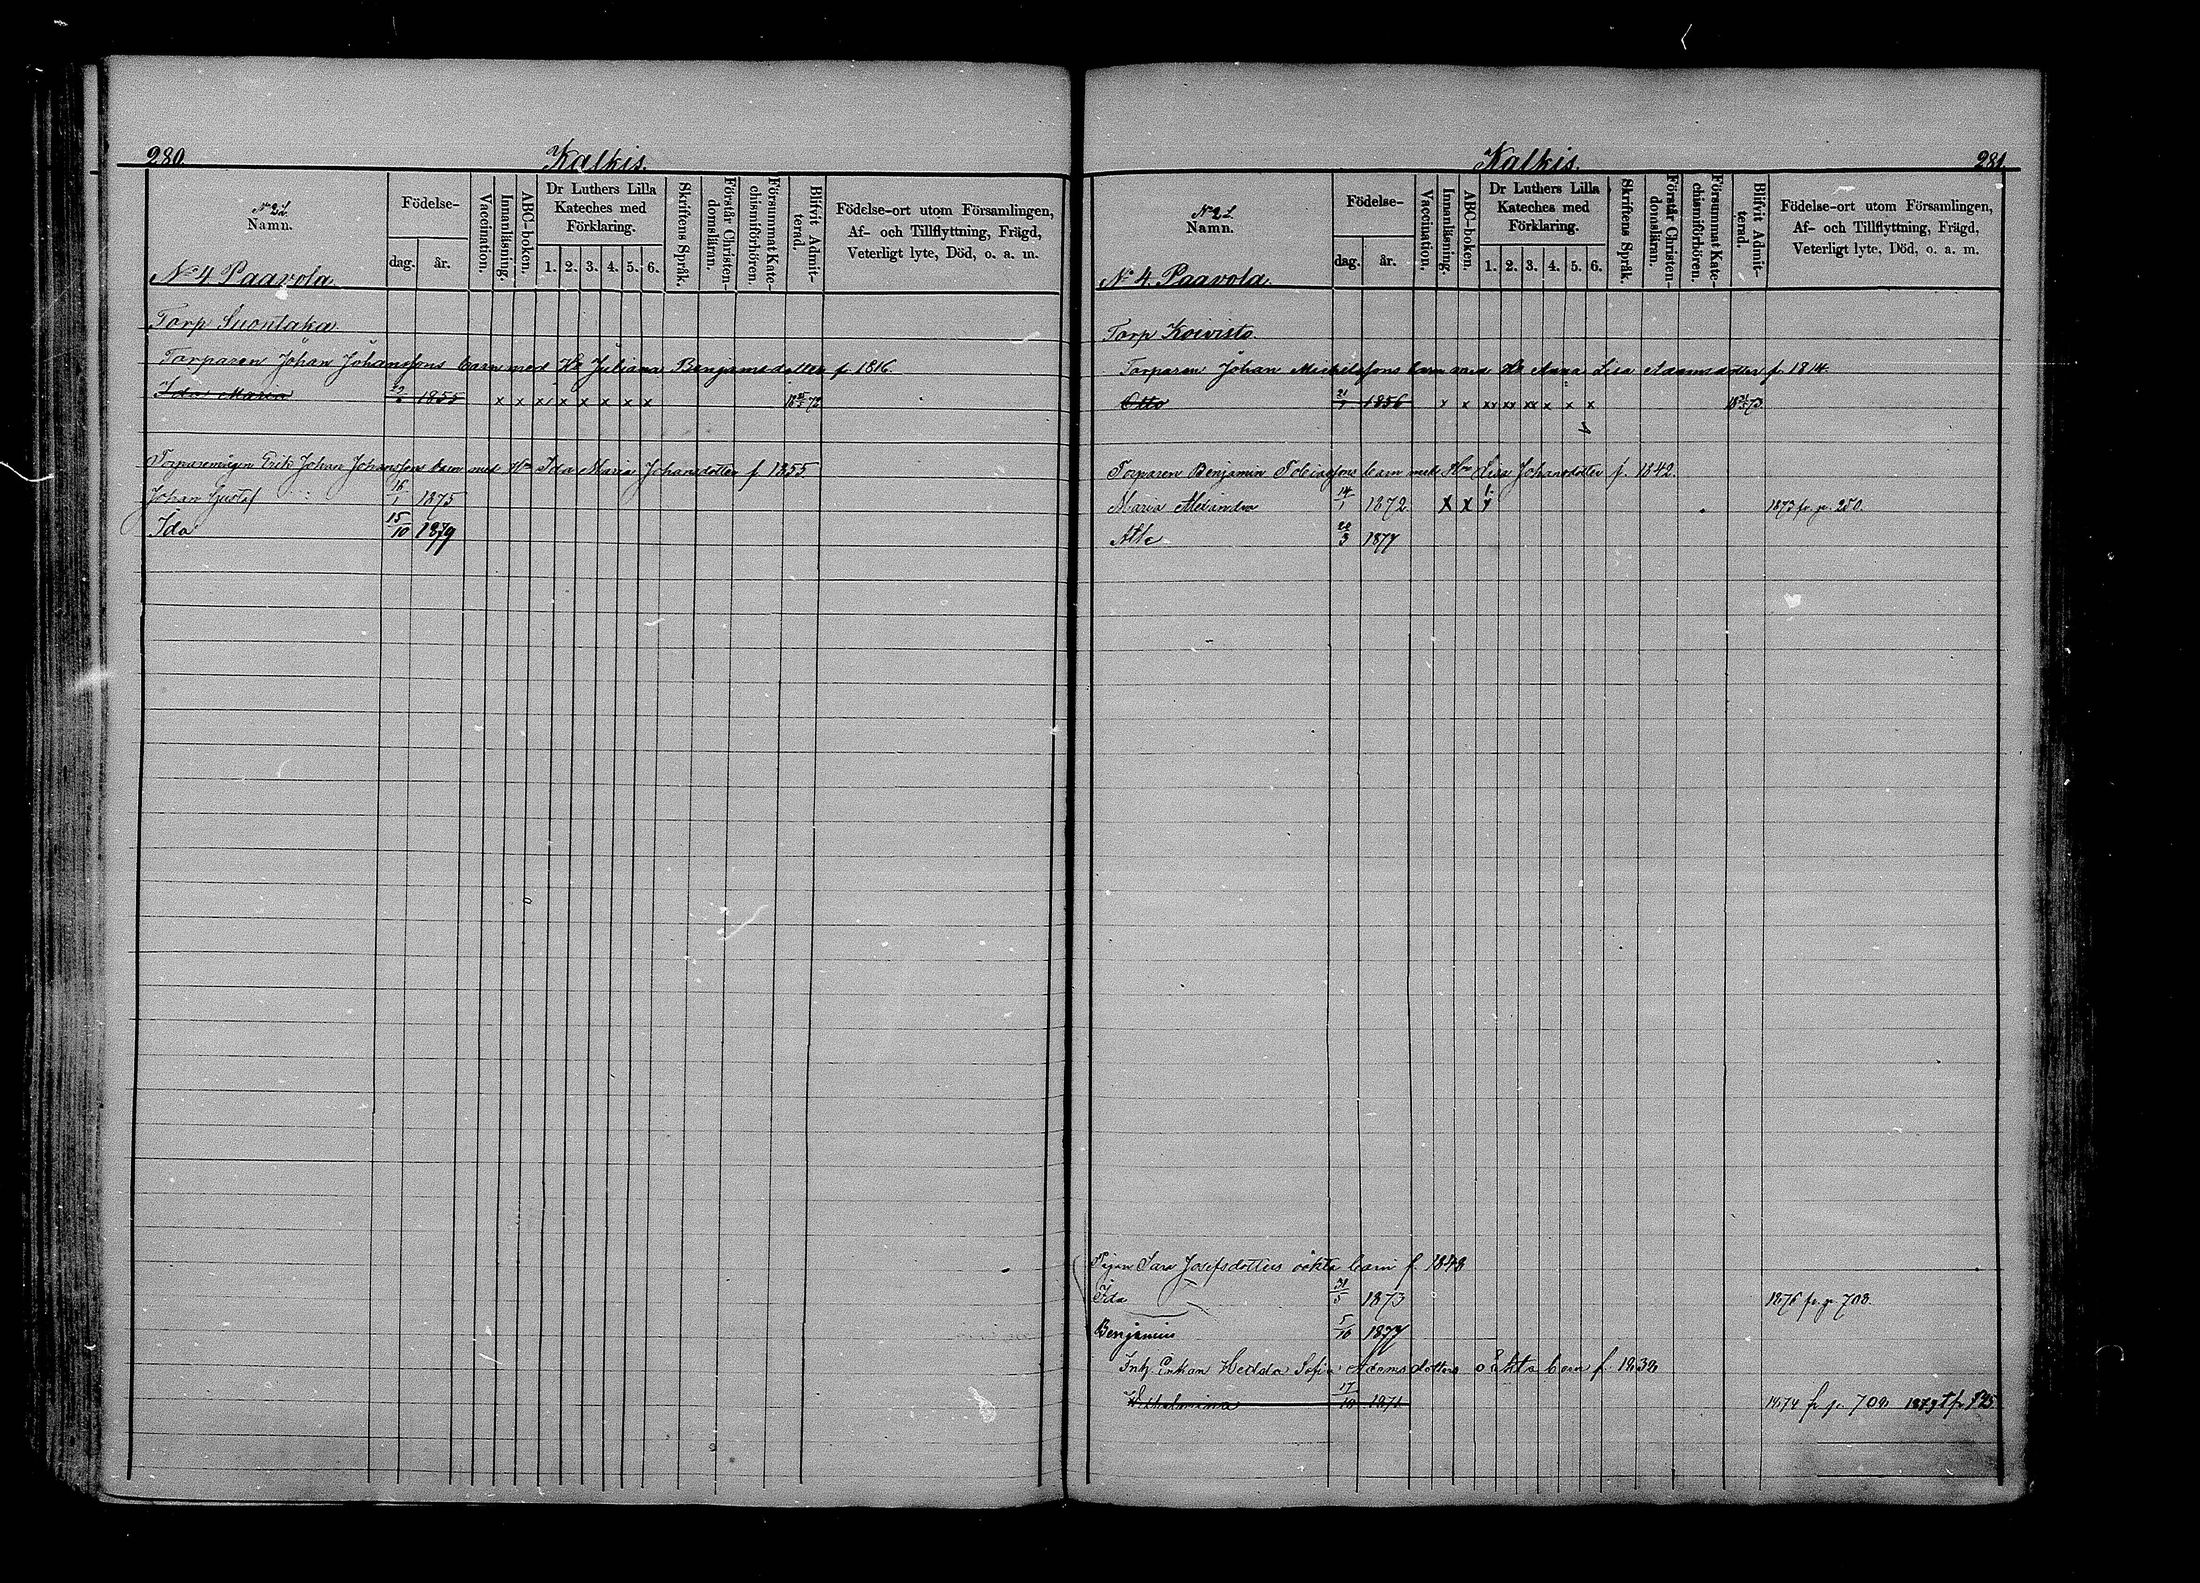 280.
Kalkis.
N:o 21.
Namn.
Födelse-
dag.
år.
Vaccination.
Innanläsning.
ABC-boken.
Dr Luthers Lilla Kateches med Förklaring.
1. 2. 3. 4. 5. 6.
Skriftens Språk.
Förstår Christendomsläran.
Försummat Katechismiförhören.
Blifvit Admitterad.
Födelse-ort utom Församlingen,
Af- och Tillflyttning, Frägd,
Veterligt lyte, Död, o. a. m.
No 4 Paavola.
Torp Suontaka
Torparen Johan Johanssons barn med Hu Juliana Benjamsdotter f 1816.
Ida Maria 1855 x x x x x x x x 18 72
Torparemågen Erik Johan Johanssons barn med Hu Ida Maria Johansdotter f 1855.
Johan Gustaf 16/1 1875
Ida 15/10 1879
Kalkis.
281.
N:o 21.
Namn.
Födelse-
dag.
år.
Vaccination.
Innanläsning.
ABC-boken.
Dr Luthers Lilla Kateches med Förklaring.
1. 2. 3. 4. 5. 6.
Skriftens Språk.
Förstår Christendomsläran.
Försummat Katechismiförhören.
Blifvit Admitterad.
Födelse-ort utom Församlingen,
Af- och Tillflyttning, Frägd,
Veterligt lyte, Död, o. a. m.
No 4. Paavola.
Torp Koivisto
Torparen Johan Michelssons barn med Hu Anna Lisa Adamsdotter f. 1814.
Otto 1856 x x xx xx xx x x x 18 73
Torparen Benjamin barn med Hu Lisa Johansdotter f. 1842.
Maria Alexandra 14/1 1872 x x x 1873 fr. p. 250.
Atle 20/3 1877
Pigan Sara Josefsdotters oäkta barn f 1848
Ida 31/5 1873 1876 fr. p. 708.
Benjamin 5/10 1877
Inh. Enkan Hedda Sofia Adamsdotters oäkta barn f. 1832
Wilhelmina 17/10 1871 1874 fr p. 709 1879